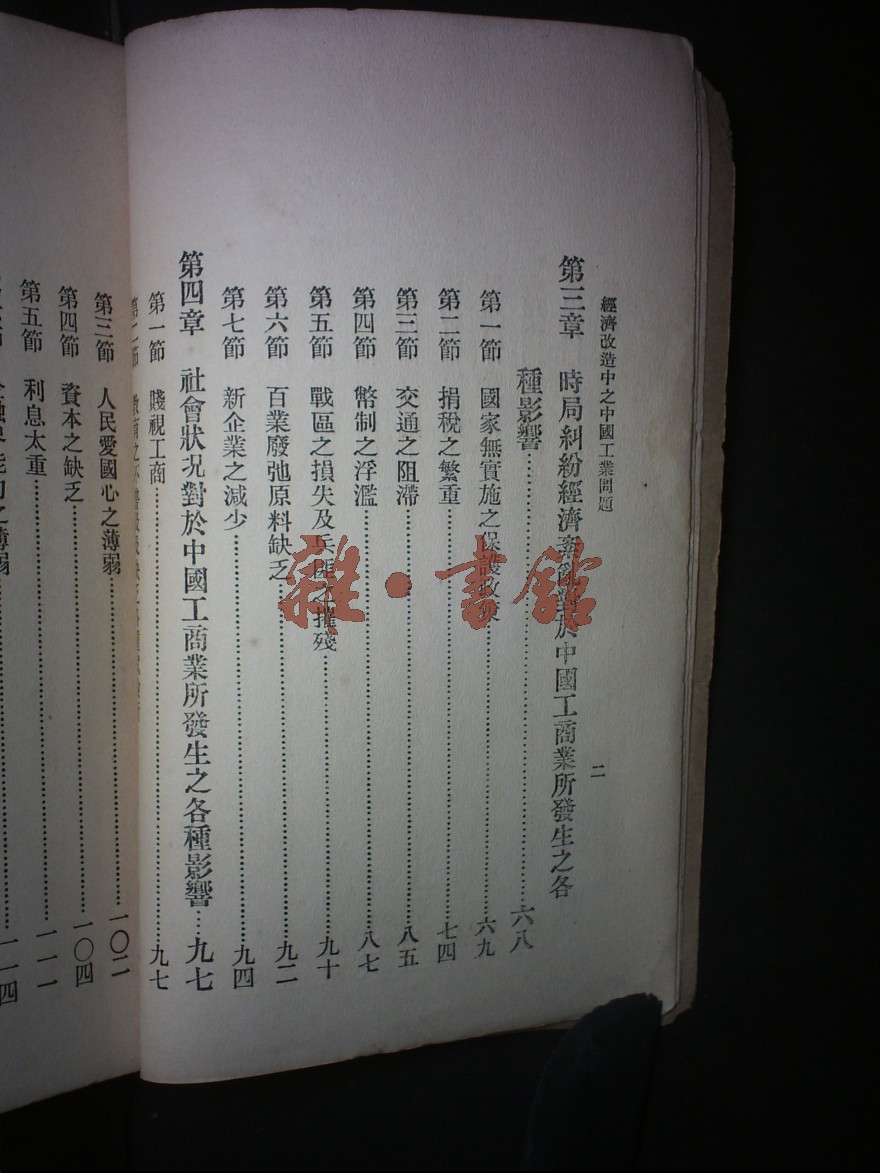 經濟改造中之中國工業問題
二
第三章 時局糾紛經濟紊亂對於中國工商業所發生之各
種影響……六八
第一節 國家無實施之保護政策……六九
第二節 捐稅之繁重……七四
第三節 交通之阻滯……八五
第四節 幣制之浮濫……八七
第五節 戰區之損失及兵匪之摧殘……九十
第六節 百業廢弛原料缺乏……九二
第七節 新企業之減少……九四
第四章 社會狀况對於中國工商業所發生之各種影響……九七
第一節 賤視工商……九七
第二節
第三節 人民愛國心之薄弱……一〇二
第四節 資本之缺乏……一〇四
第五節 利息太重……一一一
之薄弱……一一四
雜·書館